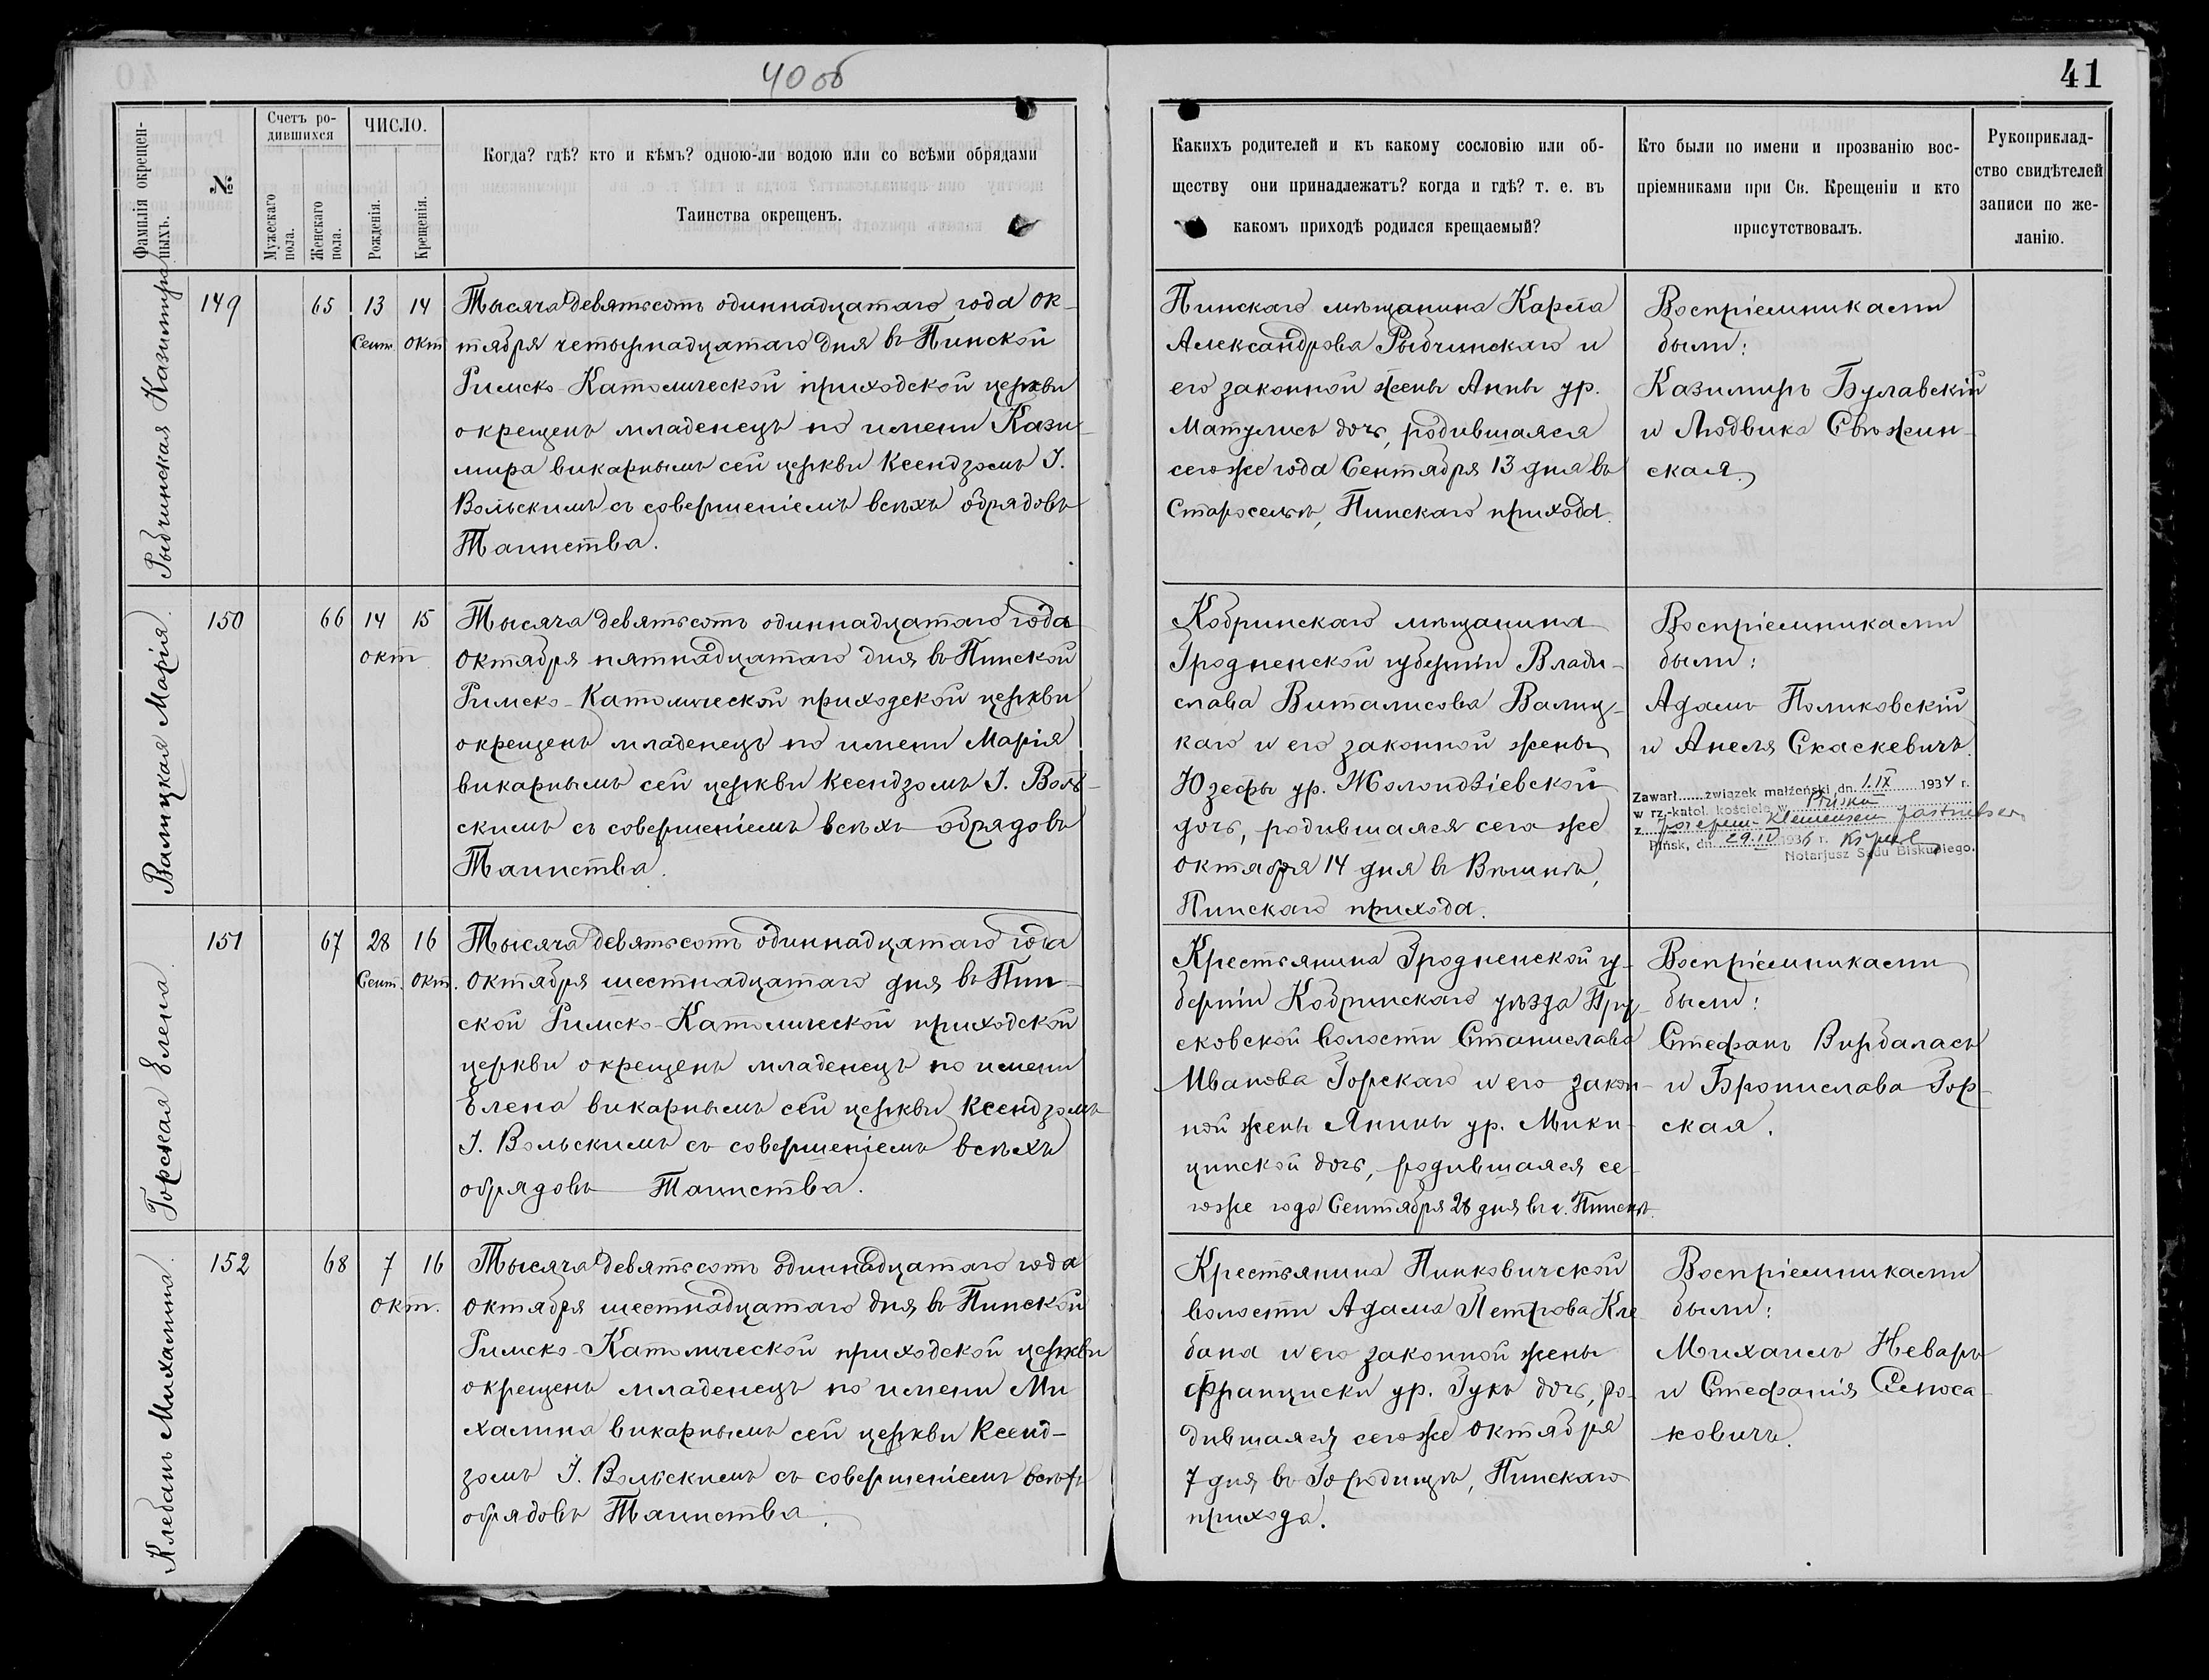 40 об
41
Фамилія окрещен-
ныхъ.
№
Счетъ ро-
дившихся
Мужескаго
пола.
Женскаго
пола.
ЧИСЛО.
Рожденія.
Крещенія.
Когда? гдѣ? кто и кѣмъ? одною-ли водою или со всѣми обрядами
Таинства окрещенъ.
Какихъ родителей и къ какому сословію или об-
ществу они принадлежатъ? когда и гдѣ? т. е. въ
какомъ приходѣ родился крещаемый?
Кто были по имени и прозванію вос-
пріемниками при Св. Крещеніи и кто
присутствовалъ.
Рукоприклад-
ство свидѣтелей
записи по же-
ланію.
Рыбчинская Казимира
149
65
13
Сент.
14
Окт
Тысяча девятьсотъ одиннадцатаго года ок-
тября четырнадцатаго дня въ Пинской
Римско-Католической приходской церкви
окрещенъ младенецъ по имени Кази-
мира викарнымъ сей церкви Ксендзомъ І.
Вольскимъ съ совершеніемъ всѣхъ обрядовъ
Таинства.
Пинскаго мѣщанина Карла
Александрова Рыбчинскаго и
его законной жены Анны ур.
Матулисъ дочь, родившаяся
сего же года Сентября 13 дня въ
Старосельѣ, Пинскаго прихода.
Воспріемниками
были:
Казимиръ Булавскій
и Людвика Свежин-
ская.
Валицкая Марія.
150
66
14
15
окт
Тысяча девятьсотъ одиннадцатаго года
Октября пятнадцатаго дня въ Пинской
Римско-Католической приходской церкви
окрещенъ младенецъ по имени Марія
викарнымъ сей церкви Ксендзомъ І. Воль-
скимъ съ совершеніемъ всѣхъ обрядовъ
Таинства.
Кобринскаго мѣщанина
Гродненской губерніи Влади-
слава Виталисова Валиц-
каго и его законной жены
Юзефы ур. Жолондзіевской
дочь, родившаяся сего же
октября 14 дня въ
Пинскаго прихода.
Воспріемниками
были:
Адамъ Поликовскій
и Анеля Скаскевичъ.
Zawarł......związek małżeński dn. 1.IX 1934 r.
w rz.-katol. kościele w Pińsku
z Józefem-Klemensem
Pińsk, dn. 29.IV 1936 r.
Notarjusz Sądu Biskupiego.
Горская Елена.
151
67
28
Сент.
16
Окт.
Тысяча девятьсотъ одиннадцатаго года
Октября шестнадцатаго дня въ Пин-
ской Римско-Католической приходской
церкви окрещенъ младенецъ по имени
Елена викарнымъ сей церкви Ксендзомъ
І. Вольскимъ съ совершеніемъ всѣхъ
обрядовъ Таинства.
Крестьянина Гродненской гу-
берніи Кобринскаго уѣзда Пру-
сковской волости Станислава
Иванова Горскаго и его закон-
ной жены Янины ур. Мики-
цинской дочь, родившаяся се-
гоже года Сентября 28 дня въ г. Пинскѣ.
Воспріемниками
были:
Стефанъ Вирбаласъ
и Бронислава Гор-
ская.
Клебанъ Михалина.
152
68
7
16
окт.
Тысяча девятьсотъ одиннадцатаго года
октября шестнадцатаго дня въ Пинской
Римско-Католической приходской церкви
окрещенъ младенецъ по имени Ми
халина викарнымъ сей церкви Ксенд-
зомъ І. Вольскимъ съ совершеніемъ всѣхъ
обрядовъ Таинства.
Крестьянина Пинковичской
волости Адама Петрова Кле-
бана и его законной жены
Франциски ур. Гукъ дочь, ро-
дившаяся сего же октября
7 дня въ Городищѣ, Пинскаго
прихода.
Воспріемниками
были:
Михаилъ Неваръ
и Стефанія Сеноса-
ковичъ.